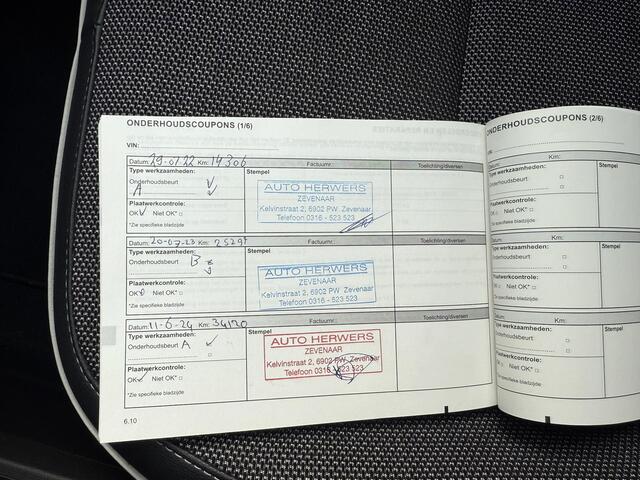 ONDERHOUDSCOUPONS (1/6)
VIN:
Datum: 29-01-22 Km: 14306 Factuurnr.: Toelichting/diversen
Type werkzaamheden: Stempel
Onderhoudsbeurt
A
AUTO HERWERS
ZEVENAAR
Kelvinstraat 2, 6902 PW Zevenaar
Telefoon 0316 - 523 523
Plaatwerkcontrole:
OK Niet OK*
*Zie specifieke bladzijde
Datum: Km: Factuurnr.: Toelichting/diversen
Type werkzaamheden: Stempel
Onderhoudsbeurt B
AUTO HERWERS
ZEVENAAR
Kelvinstraat 2, 6902 PW Zevenaar
Telefoon 0316 - 523 523
Plaatwerkcontrole:
OK Niet OK*
*Zie specifieke bladzijde
Datum: 11-6-24 Km: 34120 Factuurnr.: Toelichting/diversen
Type werkzaamheden: Stempel
Onderhoudsbeurt A
AUTO HERWERS
ZEVENAAR
Kelvinstraat 2, 6902 PW Zevenaar
Telefoon 0316 523 523
Plaatwerkcontrole:
OK Niet OK*
*Zie specifieke bladzijde
6.10
ONDERHOUDSCOUPONS (2/6)
VIN:
Datum: Km:
Type werkzaamheden: Stempel
Onderhoudsbeurt
Plaatwerkcontrole:
OK Niet OK*
*Zie specifieke bladzijde
Datum: Km:
Type werkzaamheden: Stempel
Onderhoudsbeurt
Plaatwerkcontrole:
OK Niet OK*
*Zie specifieke bladzijde
Datum: Km:
Type werkzaamheden: Stempel
Onderhoudsbeurt
Plaatwerkcontrole:
OK Niet OK*
*Zie specifieke bladzijde